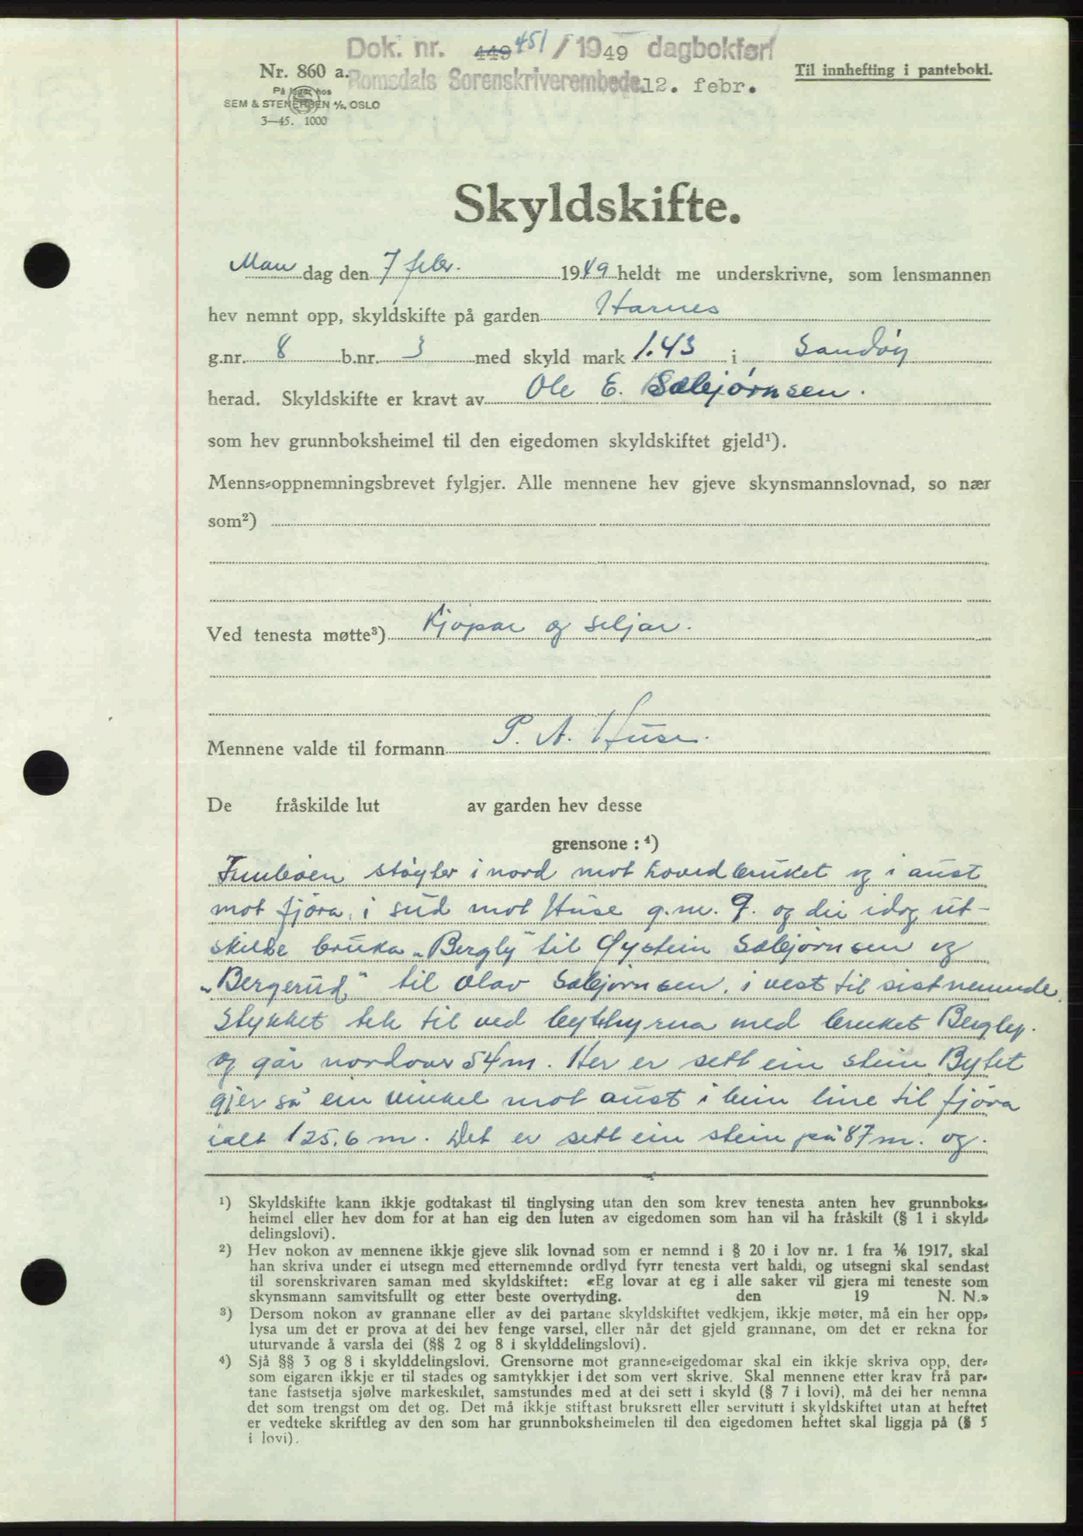 Dok. nr. 449 451 / 1949 dagbokført
Nr. 860 a. Romsdals Sorenskriverembede 12. febr.
Til innhefting i pantebok.
På lager hos
SEM & STENERSEN A/S, OSLO
3—45. 1000
Skyldskifte.
Mandag den 7 febr. 1949 heldt me underskrivne, som lensmannen
hev nemnt opp, skyldskifte på garden Harnes
g.nr. 8 b.nr. 3 med skyld mark 1.43 i Sandøy
herad. Skyldskifte er kravt av Ole E. Sæbjørnsen.
som hev grunnboksheimel til den eigedomen skyldskiftet gjeld¹).
Menns-oppnemningsbrevet fylgjer. Alle mennene hev gjeve skynsmannslovnad, so nær
som²)
Ved tenesta møtte³) Kjøpar og seljar.
Mennene valde til formann P. A. Huse.
De fråskilde lut av garden hev desse
grensone : ⁴)
støyter i nord mot hovedbruket og i aust
mot fjøra, i sud mot Huse g.nr. 9. og dei idag ut-
skilde bruka "Bergly" til Øystein Sæbjørnsen og
"Bergerud" til Olav Sæbjørnsen. i vest til sistnemnde.
Stykket tek til ved bytthyrna med bruket Bergly.
og går nordover 54 m. Her er sett ein stein Bytet
gjer så ein vinkel mot aust i bein line til fjøra
ialt 125.6 m. Det er sett ein stein på 87 m. og
¹) Skyldskifte kann ikkje godtakast til tinglysing utan den som krev tenesta anten hev grunnboks-
heimel eller hev dom for at han eig den luten av eigedomen som han vil ha fråskilt (§ 1 i skyld-
delingslovi).
²) Hev nokon av mennene ikkje gjeve slik lovnad som er nemnd i § 20 i lov nr. 1 fra 1/6 1917, skal
han skriva under ei utsegn med etternemnde ordlyd fyrr tenesta vert haldi, og utsegni skal sendast
til sorenskrivaren saman med skyldskiftet: «Eg lovar at eg i alle saker vil gjera mi teneste som
skynsmann samvitsfullt og etter beste overtyding. den 19 N. N.»
³) Dersom nokon av grannane eller av dei partane skyldskiftet vedkjem, ikkje møter, må ein her opp-
lysa um det er prova at dei hev fenge varsel, eller når det gjeld grannane, om det er rekna for
uturvande å varsla dei (§§ 2 og 8 i skylddelingslovi).
⁴) Sjå §§ 3 og 8 i skylddelingslovi. Grensorne mot granne-eigedomar skal ein ikkje skriva opp, der-
som eigaren ikkje er til stades og samtykkjer i det som vert skrive. Skal mennene etter krav frå par-
tane fastsetja sjølve markeskilet, samstundes med at dei sett i skyld (§ 7 i lovi), må dei her nemna
det som trengst om det og. Det må ikkje stiftast bruksrett eller servitutt i skyldskiftet utan at heftet
er vedteke skriftleg av den som har grunnboksheimelen til den eigedomen heftet skal liggja på (§ 5
i lovi).